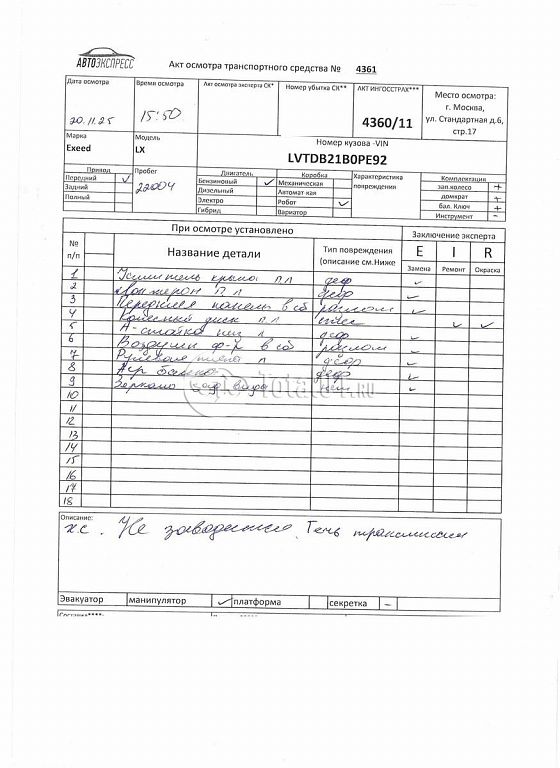 АВТОЭКСПРЕСС
Акт осмотра транспортного средства № 4361
Дата осмотра
20.11.25
Время осмотра
15:50
Акт осмотра эксперта СК*
Номер убытка СК**
АКТ ИНГОССТРАХ***
4360/11
Место осмотра:
г. Москва,
ул. Стандартная д.6,
стр.17
Марка
Exeed
Модель
LX
Номер кузова -VIN
LVTDB21B0PE92
Привод
Передний ✓
Задний
Полный
Пробег
22004
Двигатель
Бензиновый ✓
Дизельный
Электро
Гибрид
Коробка
Механическая
Автомат кая
Робот ✓
Вариатор
Характеристика
повреждения
Комплектация
зап.колесо +
домкрат +
бал. Ключ +
Инструмент -
При осмотре установлено
Заключение эксперта
№ п/п
Название детали
Тип повреждения
(описание см.Ниже
E I R
Замена Ремонт Окраска
1 Усилитель крыла п л деф ✓
2 Лонжерон п л деф ✓
3 Передняя панель в сб разлом ✓
4 диск п л
5 А-стойка деф ✓ ✓
6 Воздушн ф-р в сб разлом ✓
7 Рулевая п деф ✓
8 Аир деф ✓
9 Зеркало зад вида ✓
10
11
12
13
14
15
16
17
18
total01.ru
Описание:
х.с. Не заводится. Течь трансмиссии
Эвакуатор манипулятор ✓ платформа секретка -